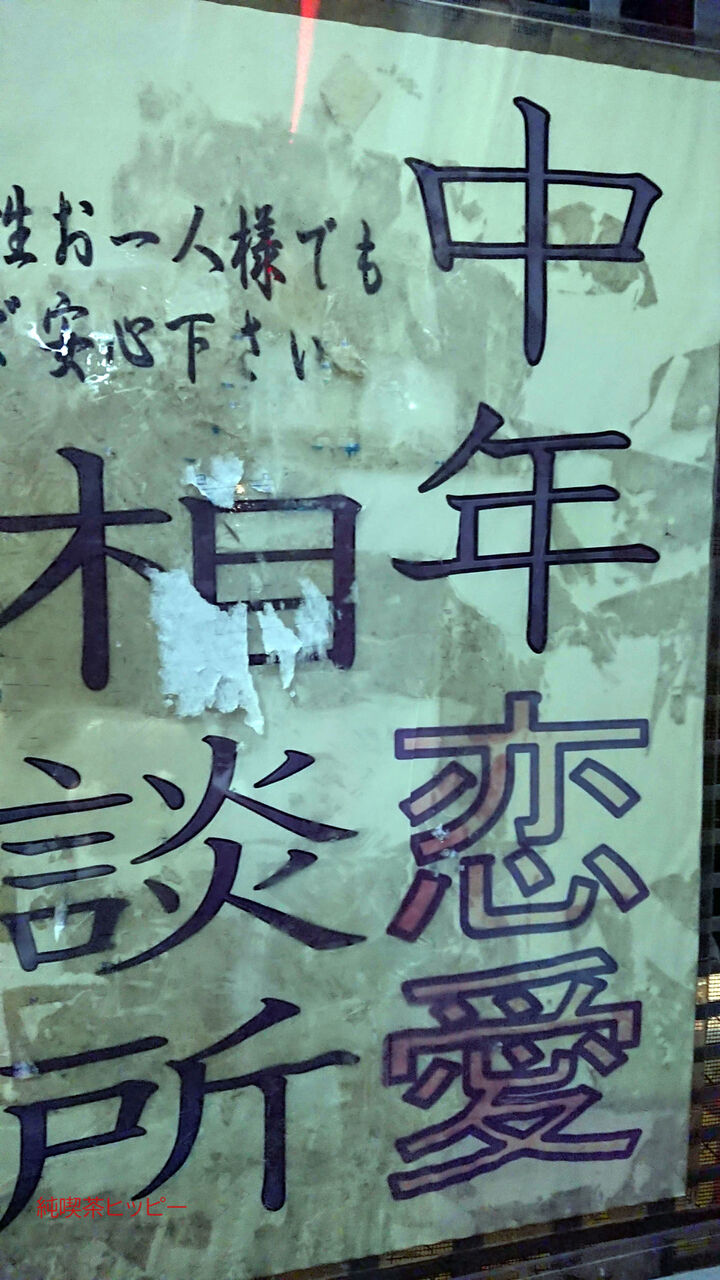 中年恋愛
相談所
性お一人様でも
ご安心下さい
純喫茶ヒッピー